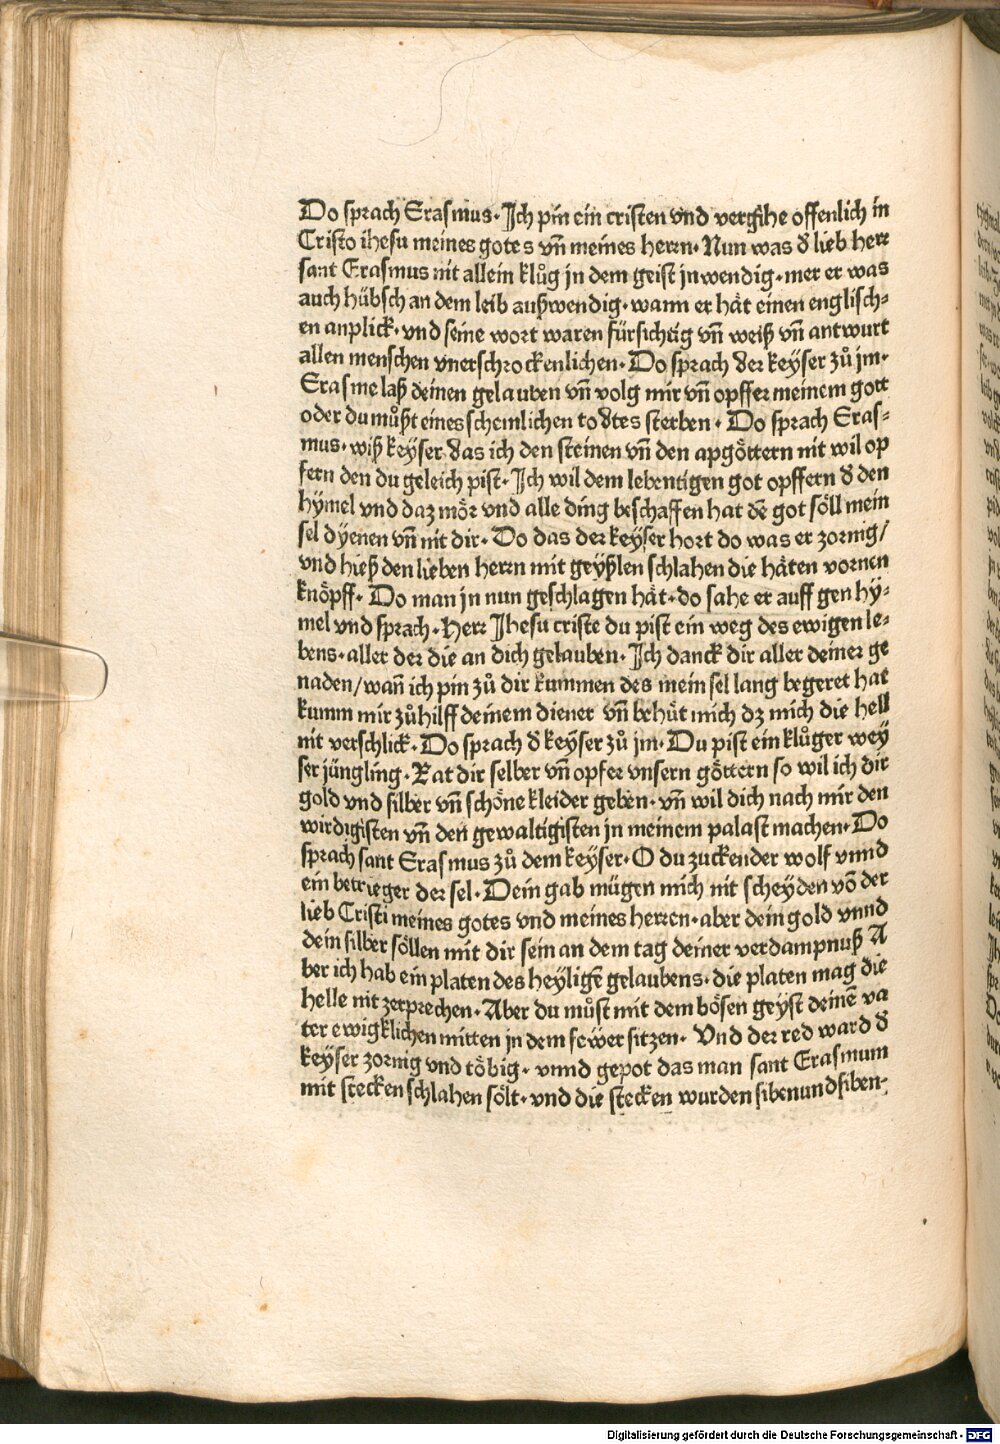 Do sprach Erasmus· Jch pin ein cristen vnd vergihe offenlich in
Cristo ihesu meines gotes vn̄ meines herrn· Nun was d̕ lieb herr
sant Erasmus nit allein klůg in dem geist jnwendig· mer er was
auch hübsch an dem leib außwendig· wann er hät einen englisch⸗
en anplick· vnd seine wort waren fürsichtig vn̄ weiß vn̄ antwurt
allen menschen vnerschrockenlichen· Do sprach der keÿser zů jm·
Erasme laß deinen gelauben vn̄ volg mir vn̄ opffer meinem gott
oder du můßt eines schemlichen todtes sterben· Do sprach Eras⸗
mus· wiß keÿser· das ich den steinen vn̄ den apgöttern nit wil op
fern den du geleich pist· Jch wil dem lebentigen got opffern d̕ den
hÿmel vnd daz mör vnd alle ding beschaffen hat dē got söll mein
sel dÿenen vn̄ nit dir· Do das der keÿser hort do was er zornig/
vnd hieß den lieben herrn mit geÿßlen schlahen die häten vornen
knöpff· Do man jn nun geschlagen hät· do sahe er auff gen hÿ⸗
mel vnd sprach· Herr Jhesu criste du pist ein weg des ewigen le⸗
bens· aller der die an dich gelauben· Jch danck dir aller deiner ge
naden/wan̄ ich pin zů dir kummen des mein sel lang begeret hat
kumm mir zůhilff deinem diener vn̄ behüt mich dz mich die hell
nit verschlick· Do sprach d̕ keÿser zů jm· Du pist ein klůger weÿ
ser jüngling· Rat dir selber vn̄ opfer vnsern göttern so wil ich dir
gold vnd silber vn̄ schöne kleider geben· vn̄ wil dich nach mir den
wirdigisten vn̄ den gewaltigisten jn meinem palast machen· Do
sprach sant Erasmus zů dem keÿser· O du zuckender wolf vnnd
ein betrieger der sel· Dein gab mügen mich nit scheÿden vō der
lieb Cristi meines gotes vnd meines herren· aber dein gold vnnd
dein silber söllen mit dir sein an dem tag deiner verdampnuß A
ber ich hab ein platen des heÿligē gelaubens· die platen mag die
helle nit zerprechen· Aber du můst mit dem bösen geÿst deinē va
ter ewigklichen mitten jn dem fewer sitzen· Vnd der red ward d̕
keÿser zornig vnd töbig· vnnd gepot das man sant Erasmum
mit stecken schlahen sölt· vnd die stecken wurden sibenundsiben⸗
Digitalisierung gefördert durch die Deutsche Forschungsgemeinschaft - DFG